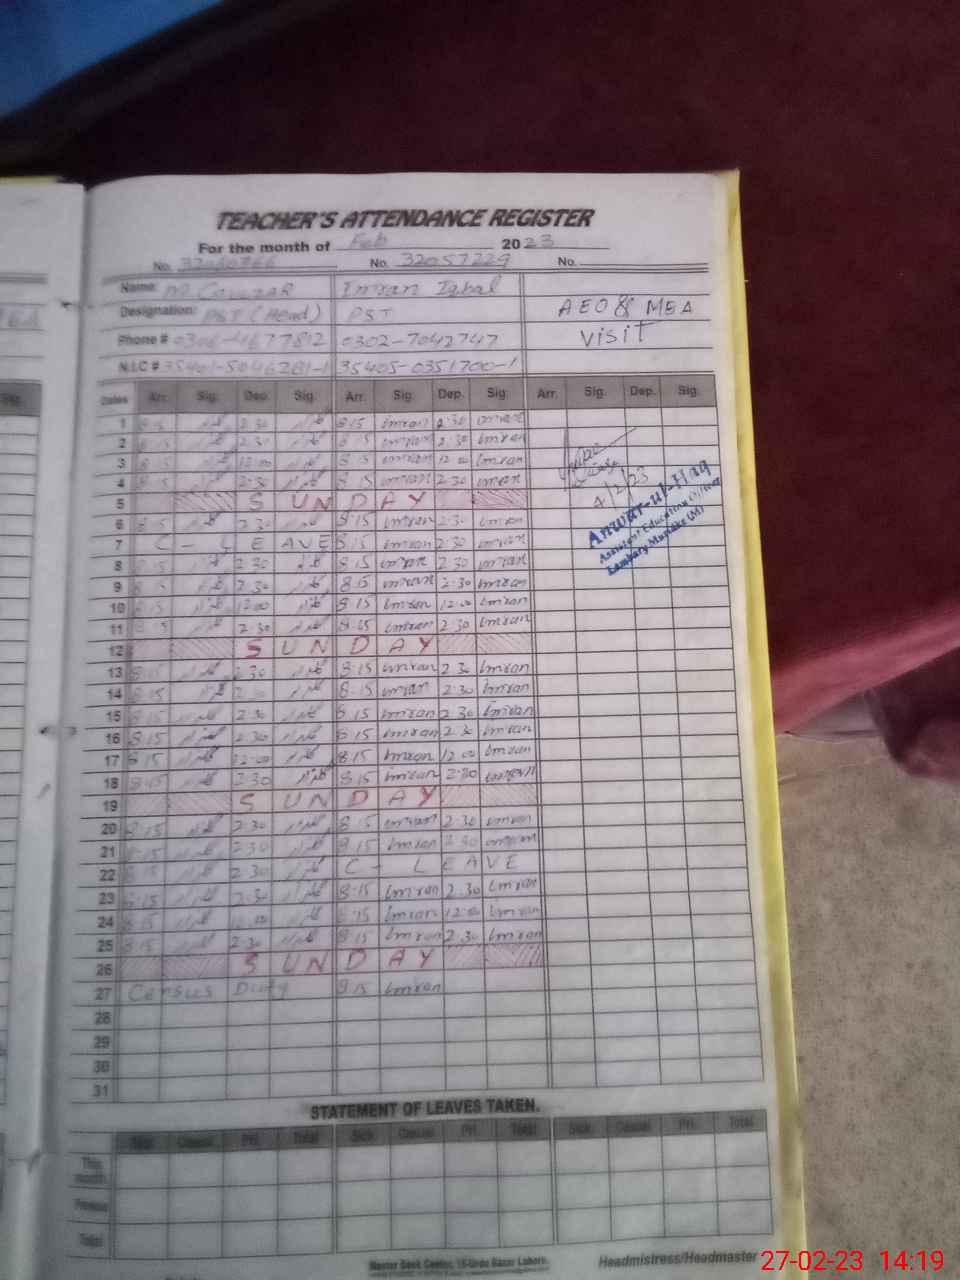 TEACHER'S ATTENDANCE REGISTER
For the month of Feb 2023
No. No. 32057229 No.
Name: Imran Iqbal
Designation: PST (Head) PST AEO & MEA
Phone # 0306-4677812 0302-7042747 Visit
N.I.C # 35401-5046281-1 35405-0351700-1
Dates Arr. Sig. Dep. Sig. Arr. Sig. Dep. Sig. Arr. Sig. Dep. Sig.
1 8:15 2:30 8:15 Imran 2:30 Imran
2 8:15 2:30 8:15 Imran 2:30 Imran
3 8:15 12:00 8:15 Imran 12:00 Imran
4 8:15 2:30 8:15 Imran 2:30 Imran
4/2/23
5 SUNDAY
Anwar-ul-Haq
Assistant Education Officer
6 8:15 2:30 8:15 Imran 2:30 Imran
7 C - LEAVE 8:15 Imran 2:30 Imran
8 8:15 2:30 8:15 Imran 2:30 Imran
9 8:15 2:30 8:15 Imran 2:30 Imran
10 8:15 12:00 8:15 Imran 12:00 Imran
11 8:15 2:30 8:15 Imran 2:30 Imran
12 SUNDAY
13 8:15 2:30 8:15 Imran 2:30 Imran
14 8:15 2:30 8:15 Imran 2:30 Imran
15 8:15 2:30 8:15 Imran 2:30 Imran
16 8:15 2:30 8:15 Imran 2:30 Imran
17 8:15 12:00 8:15 Imran 12:00 Imran
18 8:15 2:30 8:15 Imran 2:30 Imran
19 SUNDAY
20 8:15 2:30 8:15 Imran 2:30 Imran
21 8:15 2:30 8:15 Imran 2:30 Imran
22 8:15 2:30 C - LEAVE
23 8:15 2:30 8:15 Imran 2:30 Imran
24 8:15 12:00 8:15 Imran 12:00 Imran
25 8:15 2:30 8:15 Imran 2:30 Imran
26 SUNDAY
27 Census Duty 8:15 Imran
28
29
30
31
STATEMENT OF LEAVES TAKEN.
Sick Casual Pri. Total Sick Casual Pri. Total Sick Casual Pri. Total
This month
Previous
Total
Master Book Center, 16-Urdu Bazar Lahore.
Headmistress/Headmaster
27-02-23 14:19